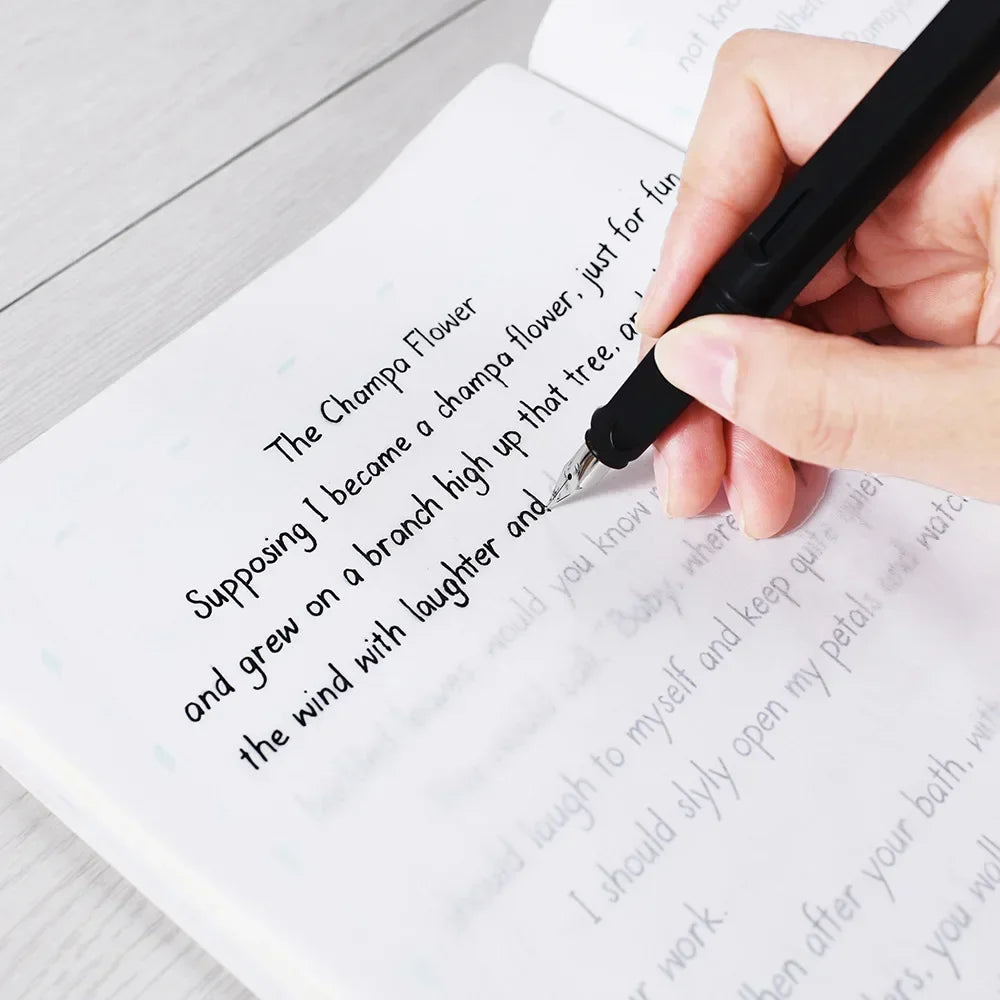 not know
The Champa Flower
Supposing I became a champa flower, just for fun,
and grew on a branch high up that tree,
the wind with laughter and
would you know
"Baby, where
laugh to myself and keep quite quiet
I should slyly open my petals and watch
work.
when after your bath, with
you walk